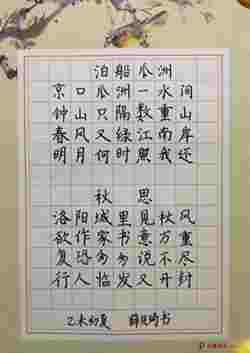 泊船瓜洲
京口瓜洲一水间
钟山只隔数重山
春风又绿江南岸
明月何时照我还
秋思
洛阳城里见秋风
欲作家书意万重
复恐匆匆说不尽
行人临发又开封
乙未初夏
书